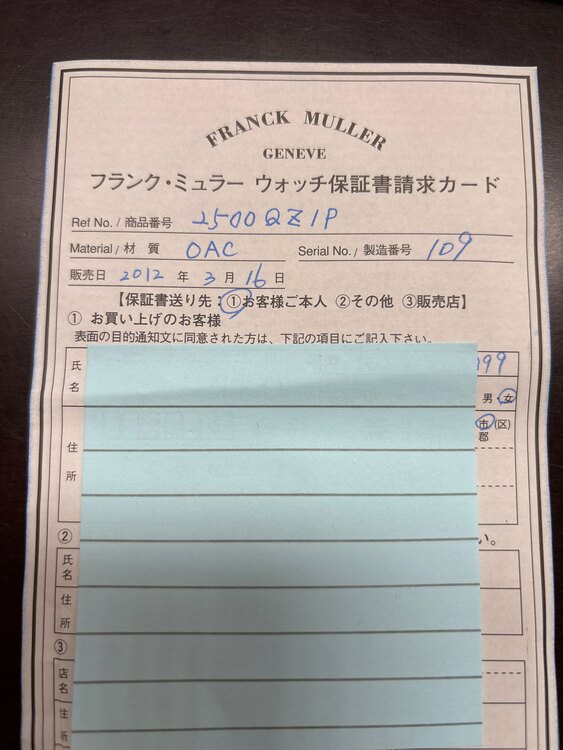 FRANCK MULLER
GENEVE
フランク・ミュラー ウォッチ保証書請求カード
Ref No. / 商品番号 2500QZ1P
Material / 材 質 OAC Serial No. / 製造番号 109
販売日 2012 年 3 月 16 日
【保証書送り先：①お客様ご本人 ②その他 ③販売店】
① お買い上げのお客様
表面の目的通知文に同意された方は、下記の項目にご記入下さい。
氏名
99
男・女
住所
市(区)
郡
②
い。
氏名
住所
③
店名
住所